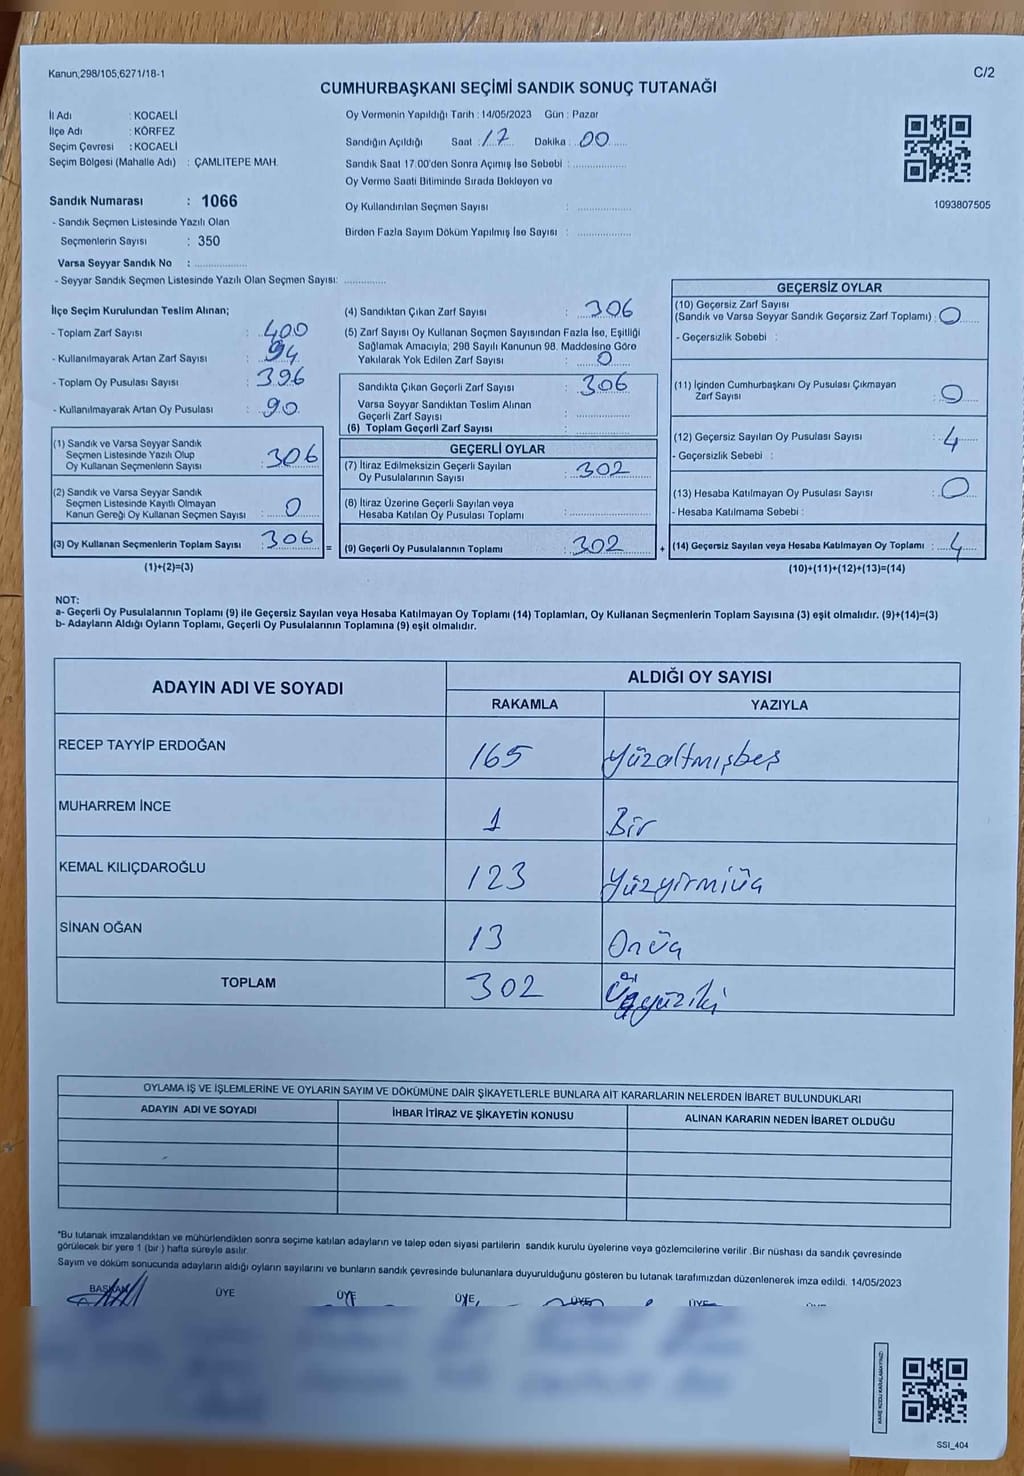 Kanun,298/105,6271/18-1
C/2
CUMHURBAŞKANI SEÇİMİ SANDIK SONUÇ TUTANAĞI
İl Adı : KOCAELİ
İlçe Adı : KÖRFEZ
Seçim Çevresi : KOCAELİ
Seçim Bölgesi (Mahalle Adı) : ÇAMLITEPE MAH.
Oy Vermenin Yapıldığı Tarih : 14/05/2023 Gün : Pazar
Sandığın Açıldığı Saat : 17 Dakika : 00
Sandık Saat 17:00'den Sonra Açımış İse Sebebi :
Oy Verme Saati Bitiminde Sırada Bekleyen ve
Oy Kullandırılan Seçmen Sayısı :
Birden Fazla Sayım Döküm Yapılmış İse Sayısı :
1093807505
Sandık Numarası : 1066
- Sandık Seçmen Listesinde Yazılı Olan
Seçmenlerin Sayısı : 350
Varsa Seyyar Sandık No :
- Seyyar Sandık Seçmen Listesinde Yazılı Olan Seçmen Sayısı:
İlçe Seçim Kurulundan Teslim Alınan;
- Toplam Zarf Sayısı : 400
- Kullanılmayarak Artan Zarf Sayısı : 94
- Toplam Oy Pusulası Sayısı : 396
- Kullanılmayarak Artan Oy Pusulası : 90
(1) Sandık ve Varsa Seyyar Sandık
Seçmen Listesinde Yazılı Olup
Oy Kullanan Seçmenlerin Sayısı : 306
(2) Sandık ve Varsa Seyyar Sandık
Seçmen Listesinde Kayıtlı Olmayan
Kanun Gereği Oy Kullanan Seçmen Sayısı : 0
(3) Oy Kullanan Seçmenlerin Toplam Sayısı : 306
(1)+(2)=(3)
(4) Sandıktan Çıkan Zarf Sayısı : 306
(5) Zarf Sayısı Oy Kullanan Seçmen Sayısından Fazla İse, Eşitliği
Sağlamak Amacıyla, 298 Sayılı Kanunun 98. Maddesine Göre
Yakılarak Yok Edilen Zarf Sayısı : 0
Sandıkta Çıkan Geçerli Zarf Sayısı : 306
Varsa Seyyar Sandıktan Teslim Alınan
Geçerli Zarf Sayısı :
(6) Toplam Geçerli Zarf Sayısı :
GEÇERLİ OYLAR
(7) İtiraz Edilmeksizin Geçerli Sayılan
Oy Pusulalarının Sayısı : 302
(8) İtiraz Üzerine Geçerli Sayılan veya
Hesaba Katılan Oy Pusulası Toplamı :
= (9) Geçerli Oy Pusulalarının Toplamı : 302
GEÇERSİZ OYLAR
(10) Geçersiz Zarf Sayısı
(Sandık ve Varsa Seyyar Sandık Geçersiz Zarf Toplamı) : 0
- Geçersizlik Sebebi :
(11) İçinden Cumhurbaşkanı Oy Pusulası Çıkmayan
Zarf Sayısı : 0
(12) Geçersiz Sayılan Oy Pusulası Sayısı : 4
- Geçersizlik Sebebi :
(13) Hesaba Katılmayan Oy Pusulası Sayısı : 0
- Hesaba Katılmama Sebebi :
+ (14) Geçersiz Sayılan veya Hesaba Katılmayan Oy Toplamı : 4
(10)+(11)+(12)+(13)=(14)
NOT:
a- Geçerli Oy Pusulalarının Toplamı (9) ile Geçersiz Sayılan veya Hesaba Katılmayan Oy Toplamı (14) Toplamları, Oy Kullanan Seçmenlerin Toplam Sayısına (3) eşit olmalıdır. (9)+(14)=(3)
b- Adayların Aldığı Oyların Toplamı, Geçerli Oy Pusulalarının Toplamına (9) eşit olmalıdır.
ADAYIN ADI VE SOYADI
ALDIĞI OY SAYISI
RAKAMLA YAZIYLA
RECEP TAYYİP ERDOĞAN 165 Yüzaltmışbeş
MUHARREM İNCE 1 Bir
KEMAL KILIÇDAROĞLU 123 Yüzyirmiüç
SİNAN OĞAN 13 Onüç
TOPLAM 302 Üçyüziki
OYLAMA İŞ VE İŞLEMLERİNE VE OYLARIN SAYIM VE DÖKÜMÜNE DAİR ŞİKAYETLERLE BUNLARA AİT KARARLARIN NELERDEN İBARET BULUNDUKLARI
ADAYIN ADI VE SOYADI İHBAR İTİRAZ VE ŞİKAYETİN KONUSU ALINAN KARARIN NEDEN İBARET OLDUĞU
*Bu tutanak imzalandıktan ve mühürlendikten sonra seçime katılan adayların ve talep eden siyasi partilerin sandık kurulu üyelerine veya gözlemcilerine verilir .Bir nüshası da sandık çevresinde
görülecek bir yere 1 (bir ) hafta süreyle asılır.
Sayım ve döküm sonucunda adayların aldığı oyların sayılarını ve bunların sandık çevresinde bulunanlara duyurulduğunu gösteren bu tutanak tarafımızdan düzenlenerek imza edildi. 14/05/2023
BAŞKAN ÜYE ÜYE ÜYE ÜYE ÜYE
SSI_404